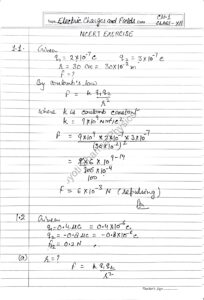 Topic Electric Charges and Fields
CH-1
CLASS - XII
NCERT EXERCISE
1.1. Given
q₁ = 2×10⁻⁷ c q₂ = 3×10⁻⁷ c
r = 30 cm = 30×10⁻² m
F = ?
By coulomb's law
F = k q₁q₂
r²
where k is coulomb constant
k = 9×10⁹ Nm²/c²
F = 9×10⁹ × 2×10⁻⁷ × 3×10⁻⁷
(30×10⁻²)²
F = 6×10⁻³ N (repulsive)
1.2 Given
q₁ = 0.4 μC = 0.4×10⁻⁶ c
q₂ = -0.8 μC = -0.8×10⁻⁶ c
F₁₂ = 0.2 N
(a) r = ?
F = k q₁q₂
r²
Teacher's Sign